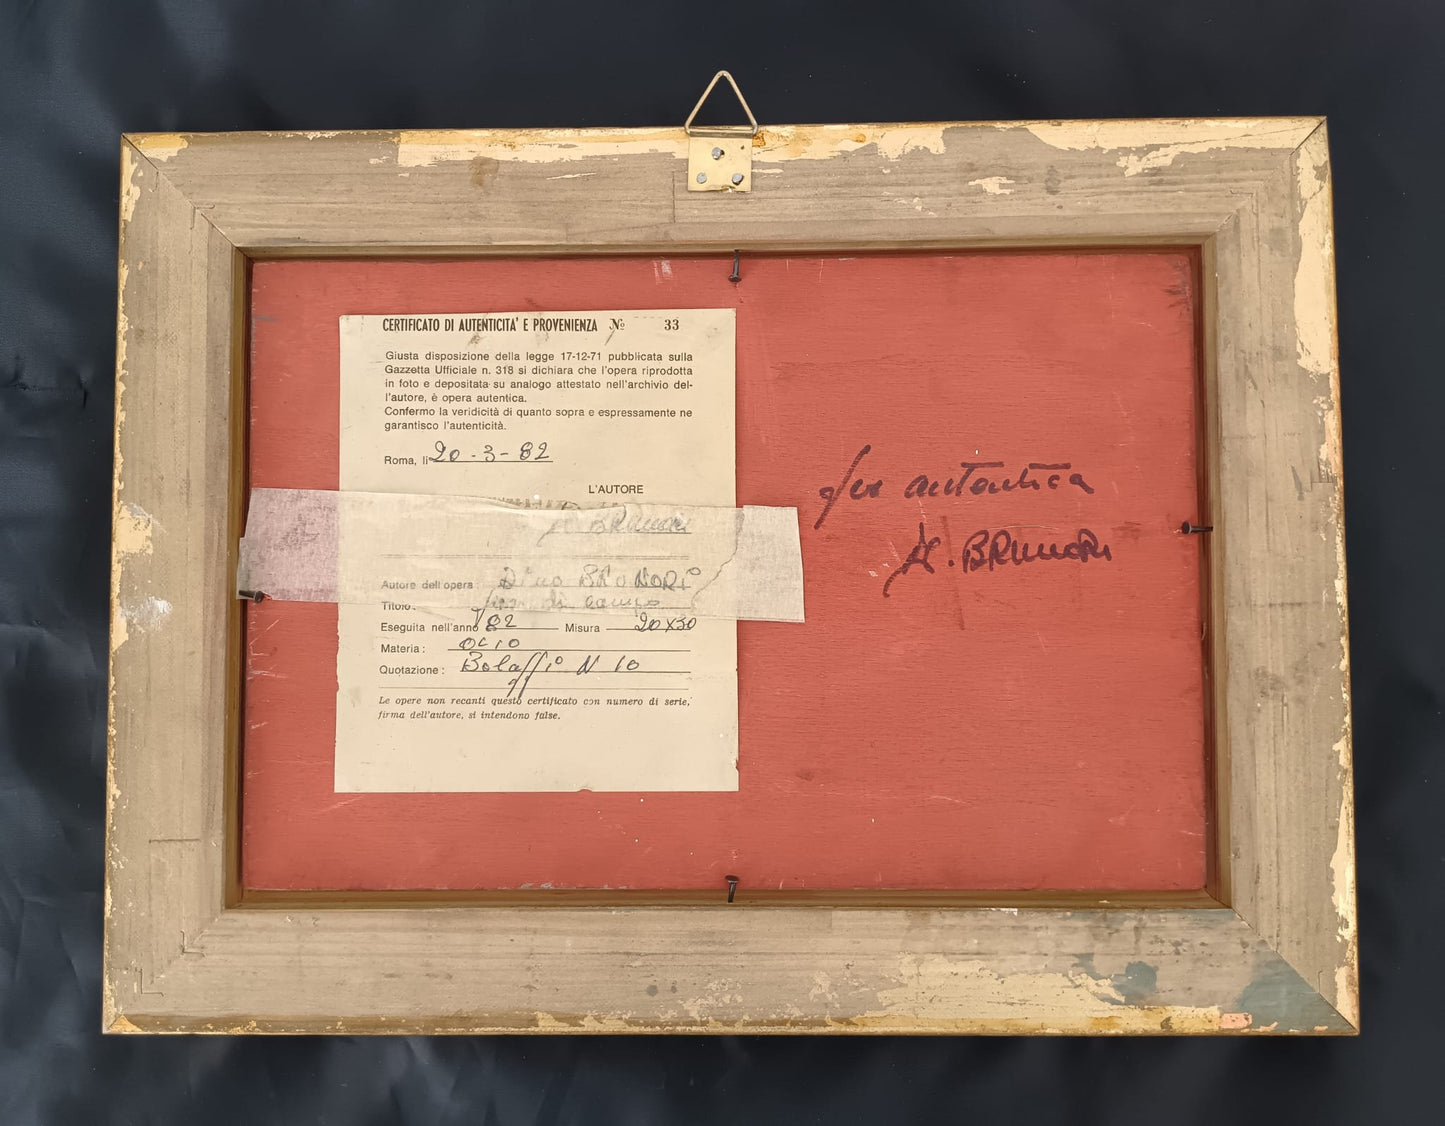 CERTIFICATO DI AUTENTICITA' E PROVENIENZA № 33
Giusta disposizione della legge 17-12-71 pubblicata sulla
Gazzetta Ufficiale n. 318 si dichiara che l'opera riprodotta
in foto e depositata su analogo attestato nell'archivio del-
l'autore, è opera autentica.
Confermo la veridicità di quanto sopra e espressamente ne
garantisco l'autenticità.
Roma, li 20-3-82
L'AUTORE
D. BRUNORI
Autore dell'opera: Dino BRUNORI
Titolo: di campo
Eseguita nell'anno 82 Misura 20x30
Materia: OLIO
Quotazione: Bolaffi N 10
Le opere non recanti questo certificato con numero di serie,
firma dell'autore, si intendono false.
per autentica
D. BRUNORI